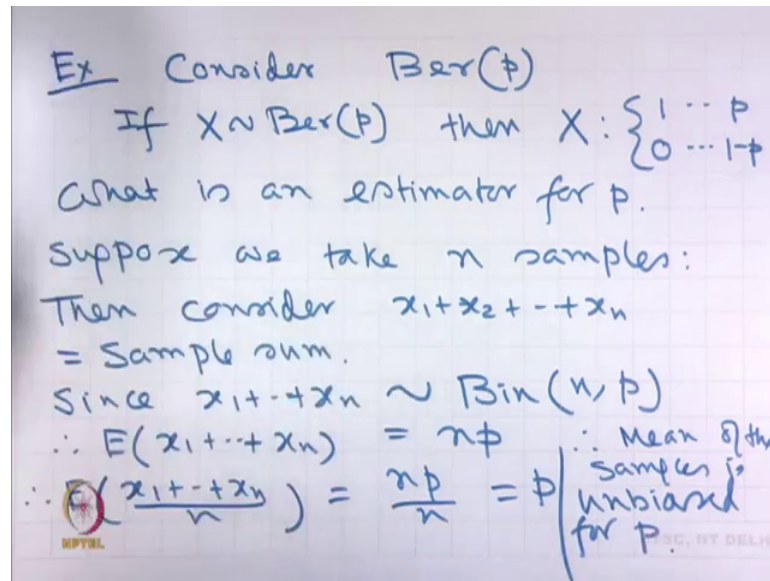 Ex Consider Ber(p)
If X ~ Ber(p) then X : { 1 --- p
0 --- 1-p
What is an estimator for p.
Suppose we take n samples:
Then consider x₁+x₂+--+xₙ
= Sample sum.
Since x₁+--+xₙ ~ Bin(n, p)
∴ E(x₁+--+xₙ) = np
∴ (x₁+--+xₙ / n) = np/n = p
∴ Mean of the
samples is
unbiased
for p.
NPTEL
IIT DELH